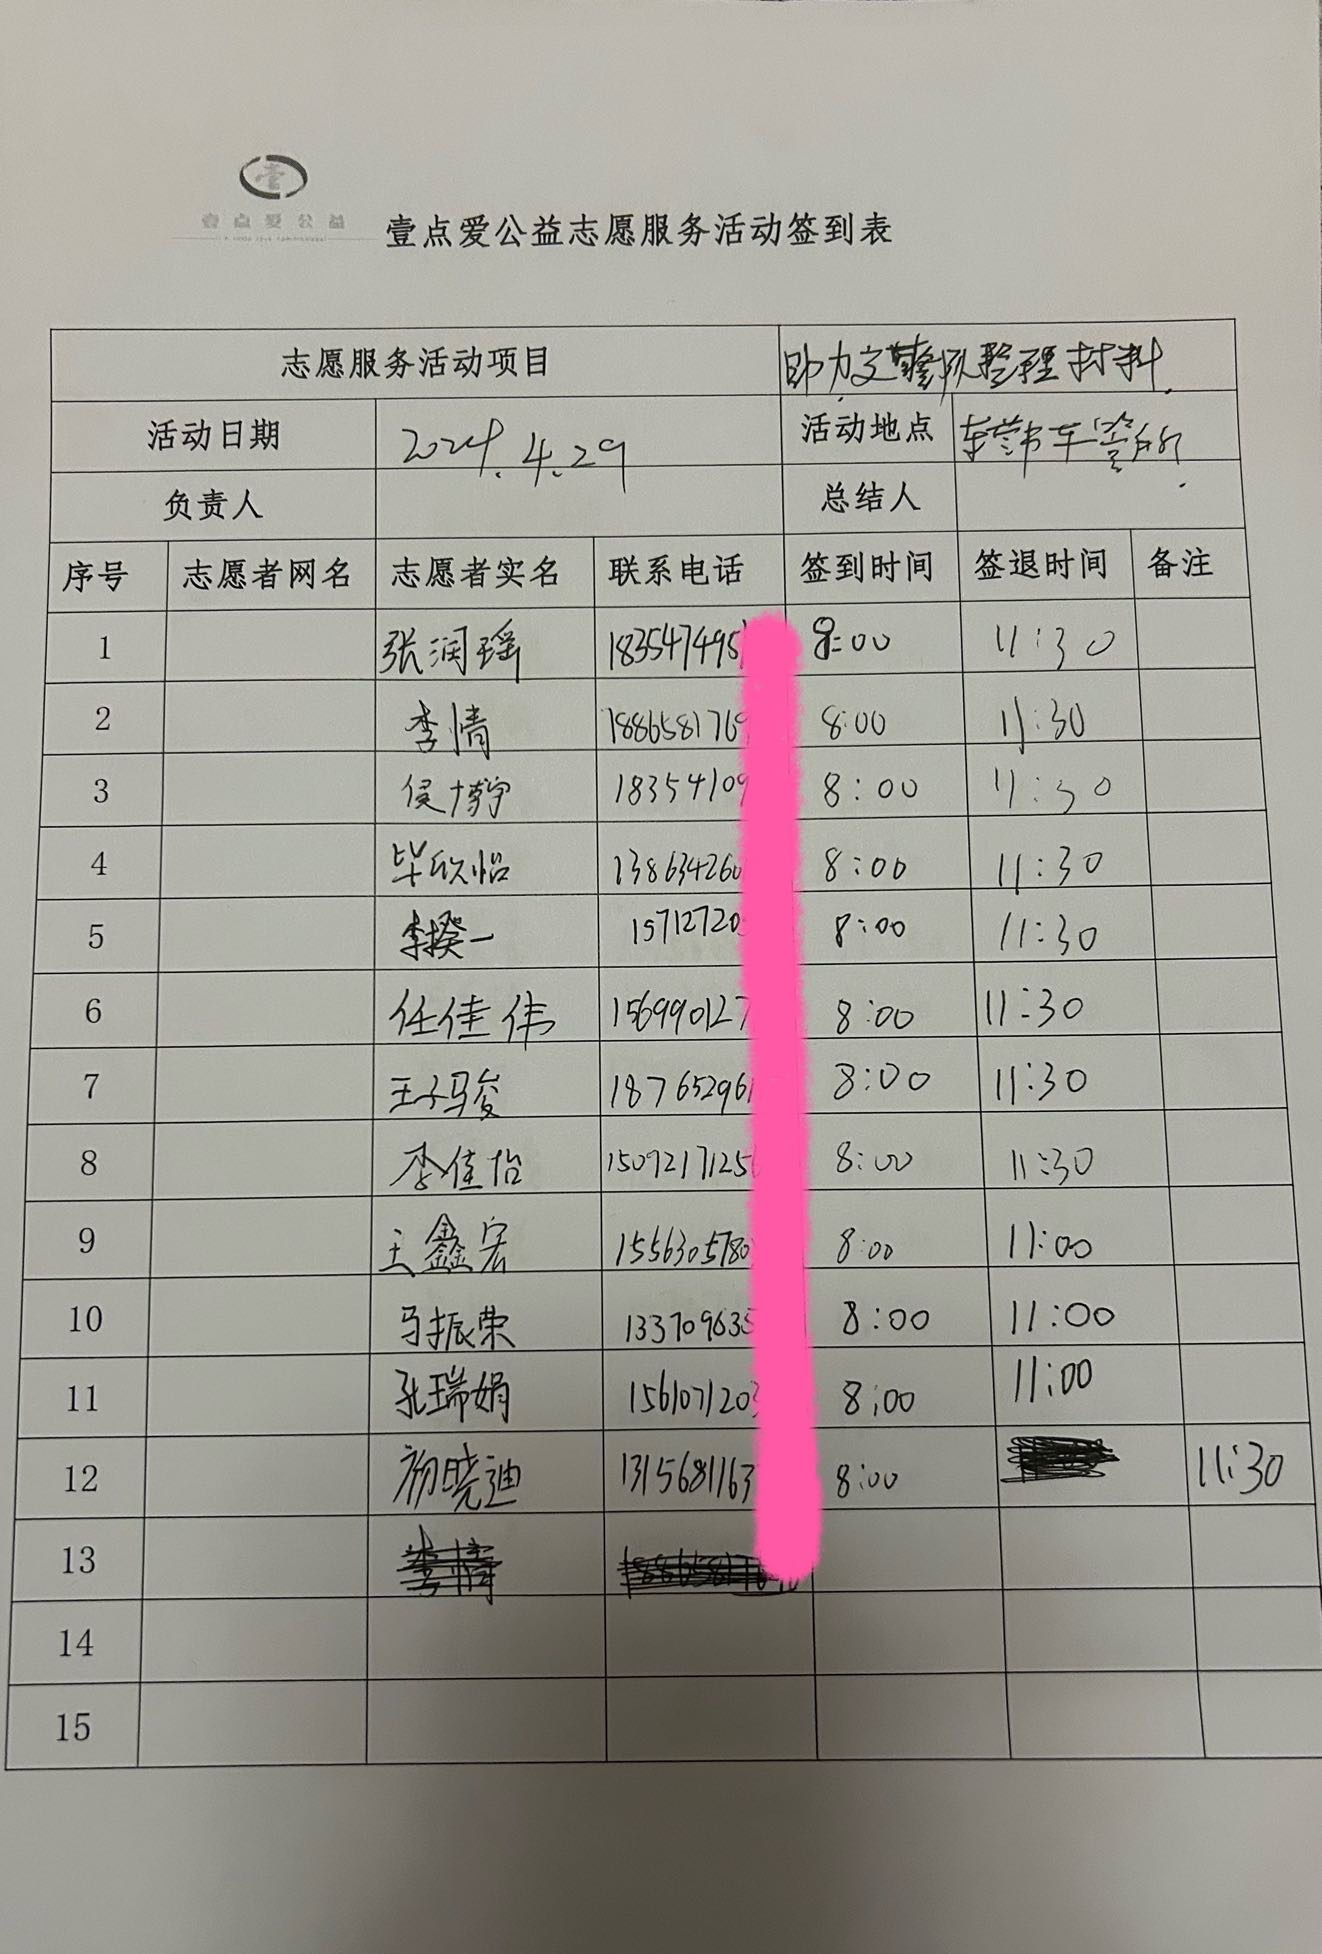 壹点爱公益
壹点爱公益志愿服务活动签到表
志愿服务活动项目 助力交警队整理材料.
活动日期 2024.4.29 活动地点 东营市车管所.
负责人 总结人
序号 志愿者网名 志愿者实名 联系电话 签到时间 签退时间 备注
1 张润瑶 183547495 8:00 11:30
2 李情 1886581769 8:00 11:30
3 侯博宇 18354109 8:00 11:30
4 毕欣怡 138634260 8:00 11:30
5 李揆一 15712720 8:00 11:30
6 任佳伟 156990127 8:00 11:30
7 王子骏 187652961 8:00 11:30
8 李佳怡 1509217125 8:00 11:30
9 王鑫宏 1556305780 8:00 11:00
10 马振荣 133709635 8:00 11:00
11 孔瑞娟 156107120 8:00 11:00
12 杨晓迪 1315681163 8:00 11:30
13 李情
14
15